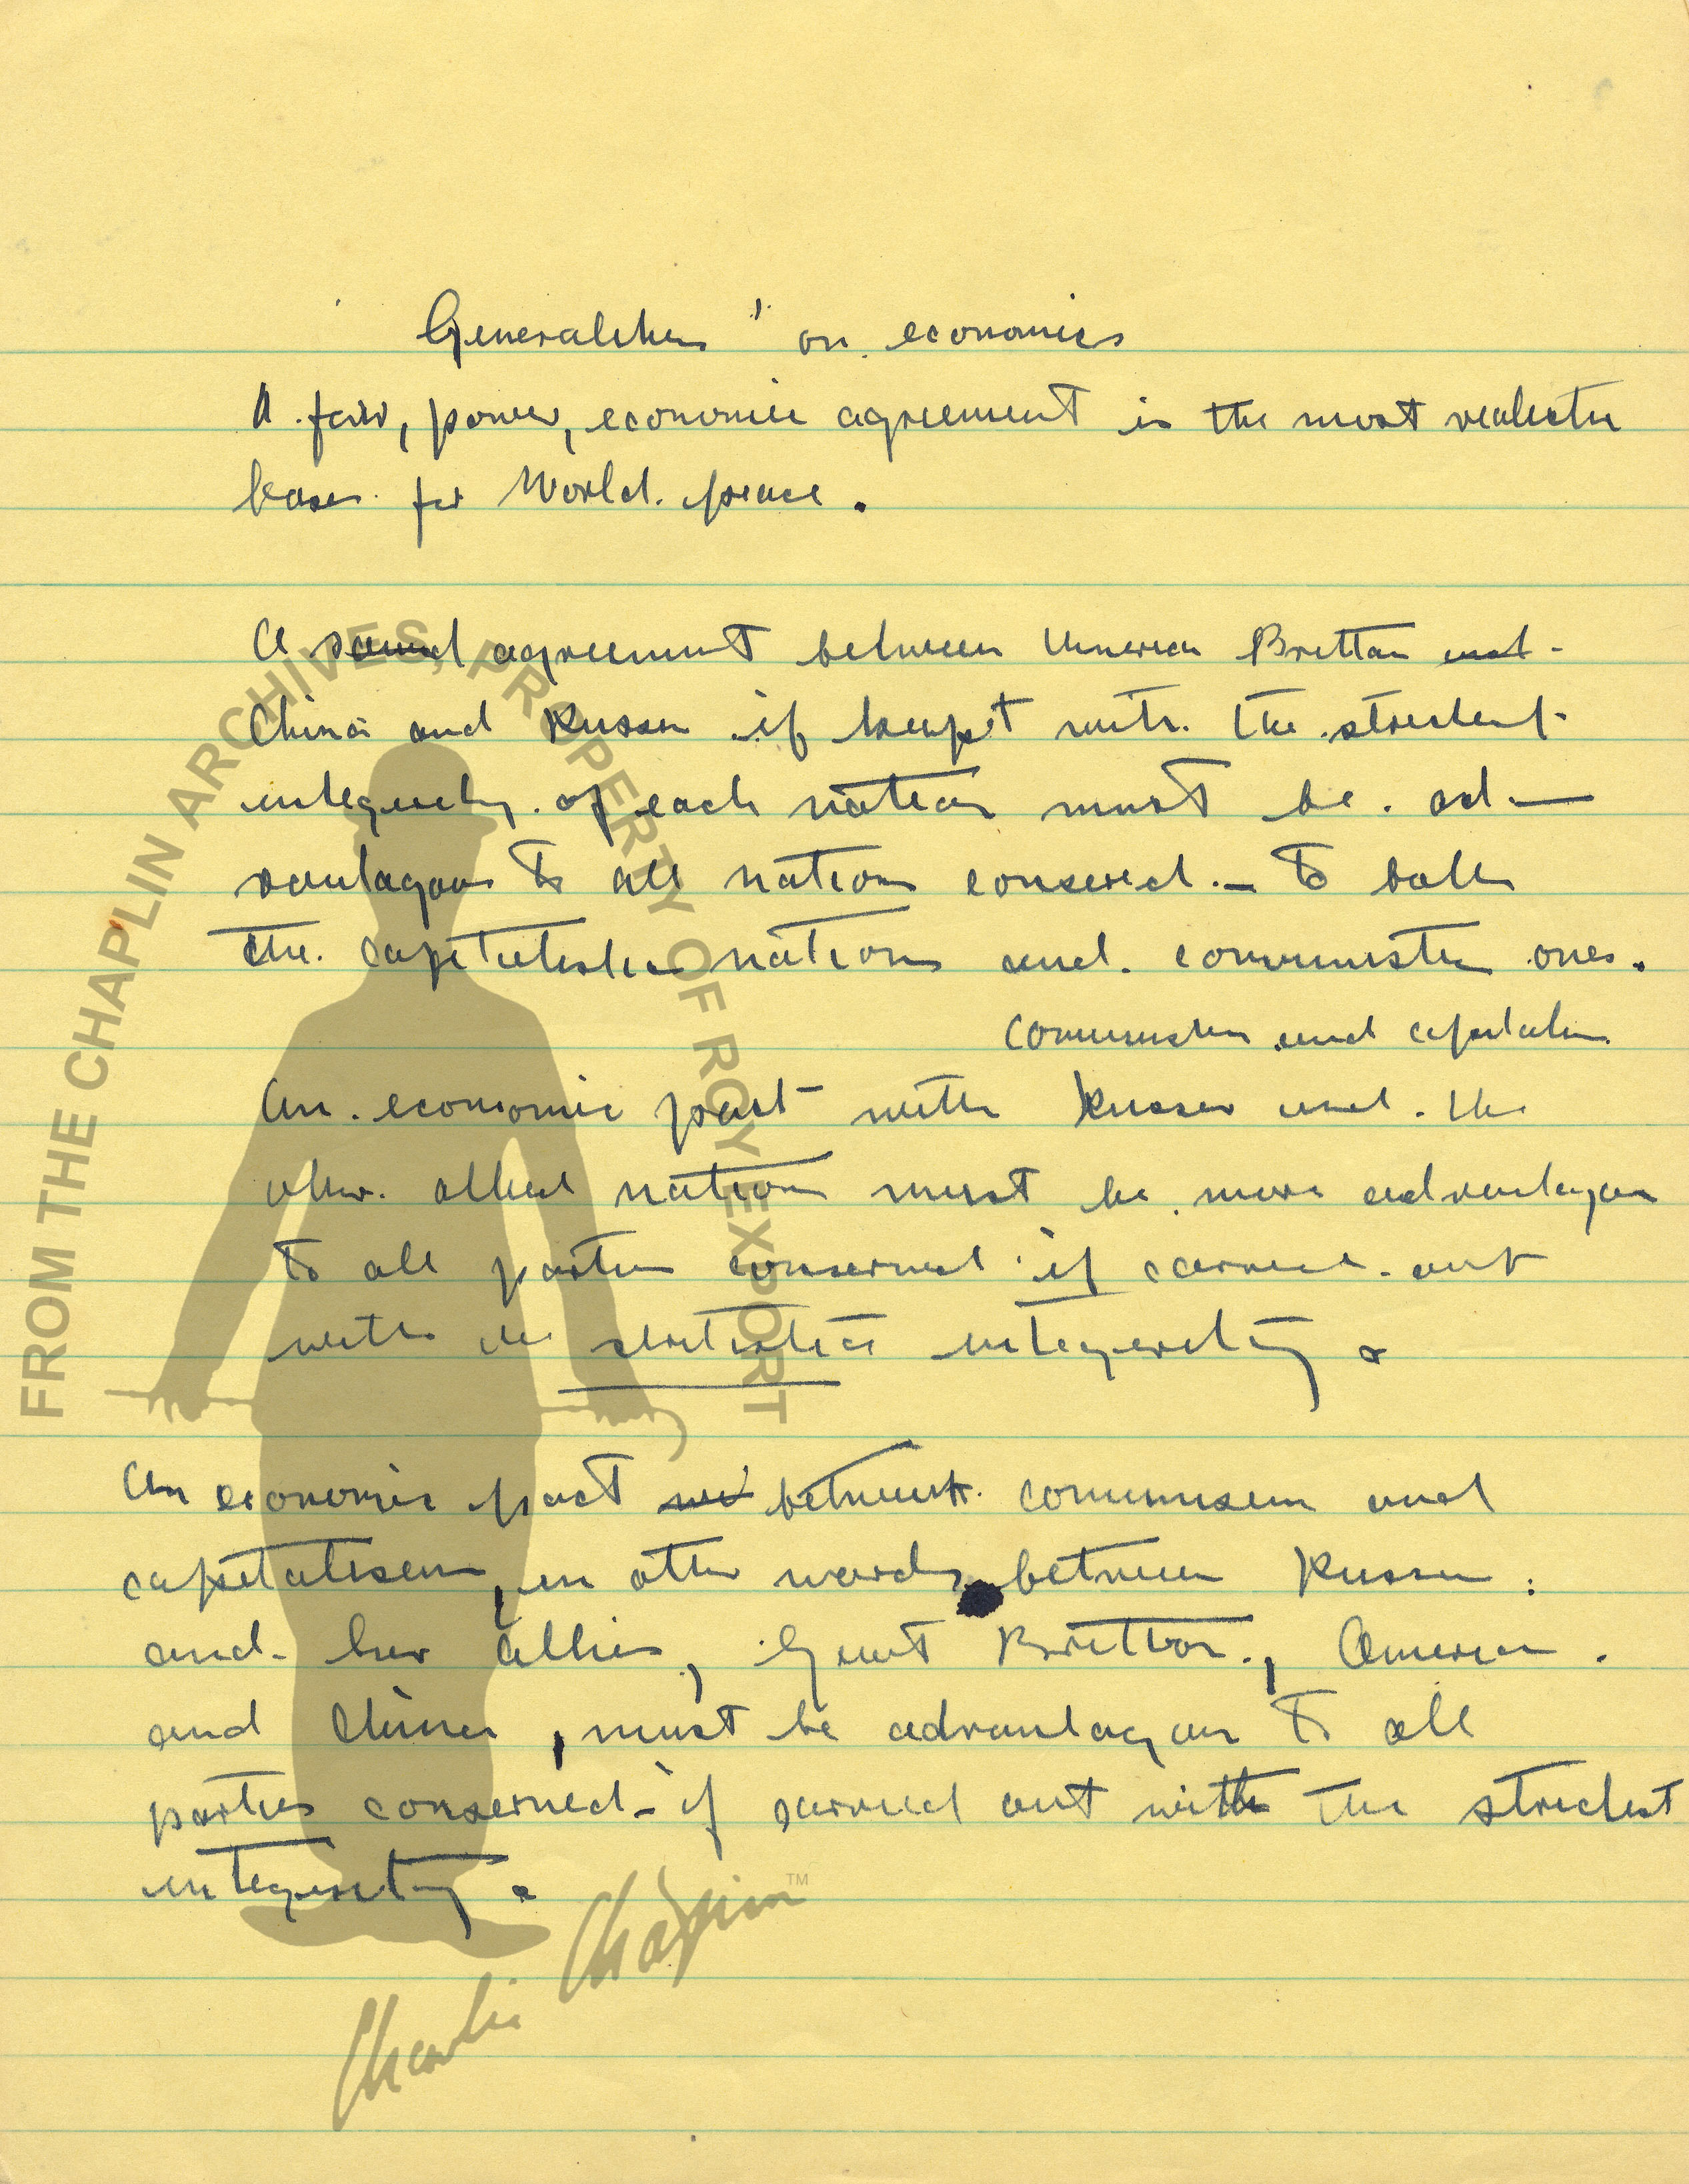 "Generalities" on economics
A fair, power, economic agreement is the most realistic
bases for World peace.
A sound agreement between America Brittan and
China and Russia if keept with the strictest
integrity of each nation must be ad-
vantagous to all nations conserned — to both
the capitalistic nations and communistic ones.
communism and capitalism
An economic pact with Russia and the
other allied nations must be more advantagous
to all parties conserned if carried out
with the strictest integerity.
An economic pact between communism and
capitalism, in other words between Russia
and her allies, Great Brittan, America
and China, must be advantagous to all
parties conserned - if carried out with the strictest
integerity.
FROM THE CHAPLIN ARCHIVES, PROPERTY OF ROY EXPORT
Charlie Chaplin™